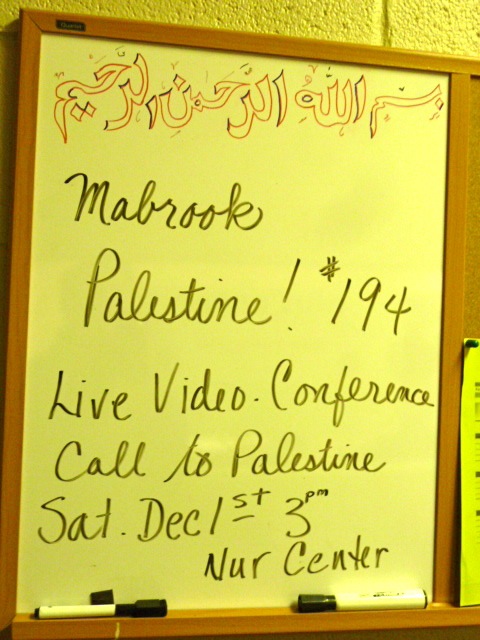 Quartet
بسم الله الرحمن الرحيم
Mabrook
Palestine! #194
Live Video-Conference
Call to Palestine
Sat. Dec 1st 3pm
Nur Center